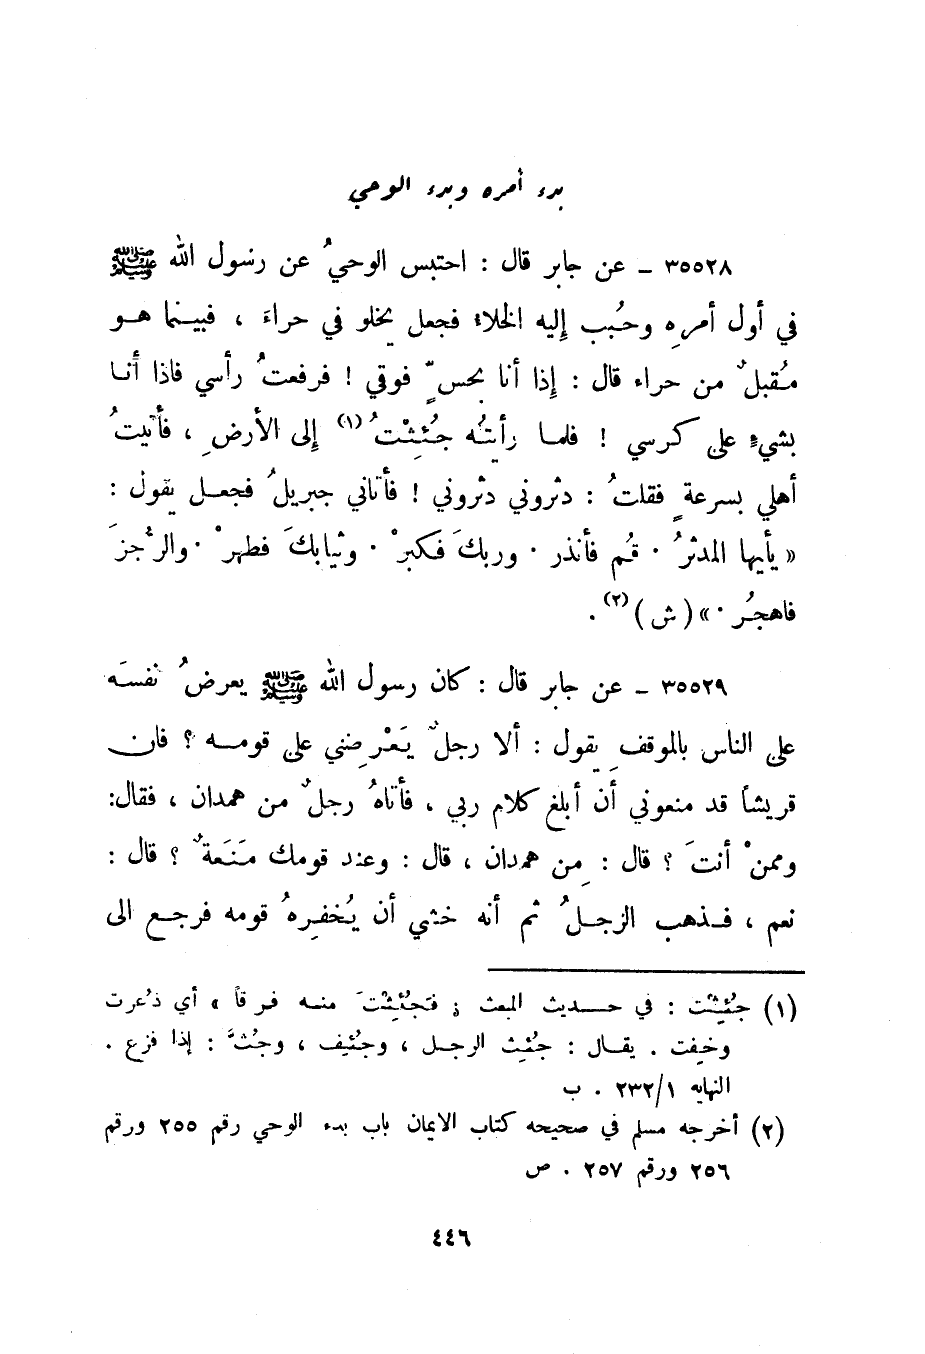 بدء أمره وبدء الوحي
٣٥٥٢٨ - عن جابر قال : احتبس الوحيُ عن رسول الله ﷺ
في أول أمرِه وحُبب إليه الخلاءُ فجعل يخلو في حراءَ ، فبينما هو
مُقبلٌ من حراء قال : إذا أنا بحسٍّ فوقي ! فرفعتُ رأسي فاذا أنا
بشيءٍ على كرسي ! فلما رأيتُه جُئِثْتُ (١) إلى الأرضِ ، فأتيتُ
أهلي بسرعةٍ فقلتُ : دثروني دثروني ! فأتاني جبريلُ فجعل يقول :
« يأيها المدثرُ · قُم فأنذر · وربكَ فكبرْ · وثيابكَ فطهرْ · والرُّجزَ
فاهجُر · » ( ش ) (٢) .
٣٥٥٢٩ - عن جابر قال : كان رسول الله ﷺ يعرضُ نفسَه
على الناس بالموقفِ يقول : ألا رجلٌ يَعْرِضني على قومه ؟ فان
قريشاً قد منعوني أن أبلغ كلام ربي ، فأتاهُ رجلٌ من همدان ، فقال:
وممنْ أنتَ ؟ قال : مِن همدان ، قال : وعند قومك مَنَعةٌ ؟ قال :
نعم ، فذهب الرجلُ ثم أنه خشي أن يُخفِرهُ قومه فرجع الى
(١) جُئِثْت : في حديث المبعث « فَجُئِثْتَ منه فرقاً » أي ذُعرت
وخِفت . يقال : جُئِث الرجل ، وجُئِف ، وجُثَّ : إذا فزع .
النهايه ٢٣٢/١ . ب
(٢) أخرجه مسلم في صحيحه كتاب الايمان باب بدء الوحي رقم ٢٥٥ ورقم
٢٥٦ ورقم ٢٥٧ . ص
٤٤٦